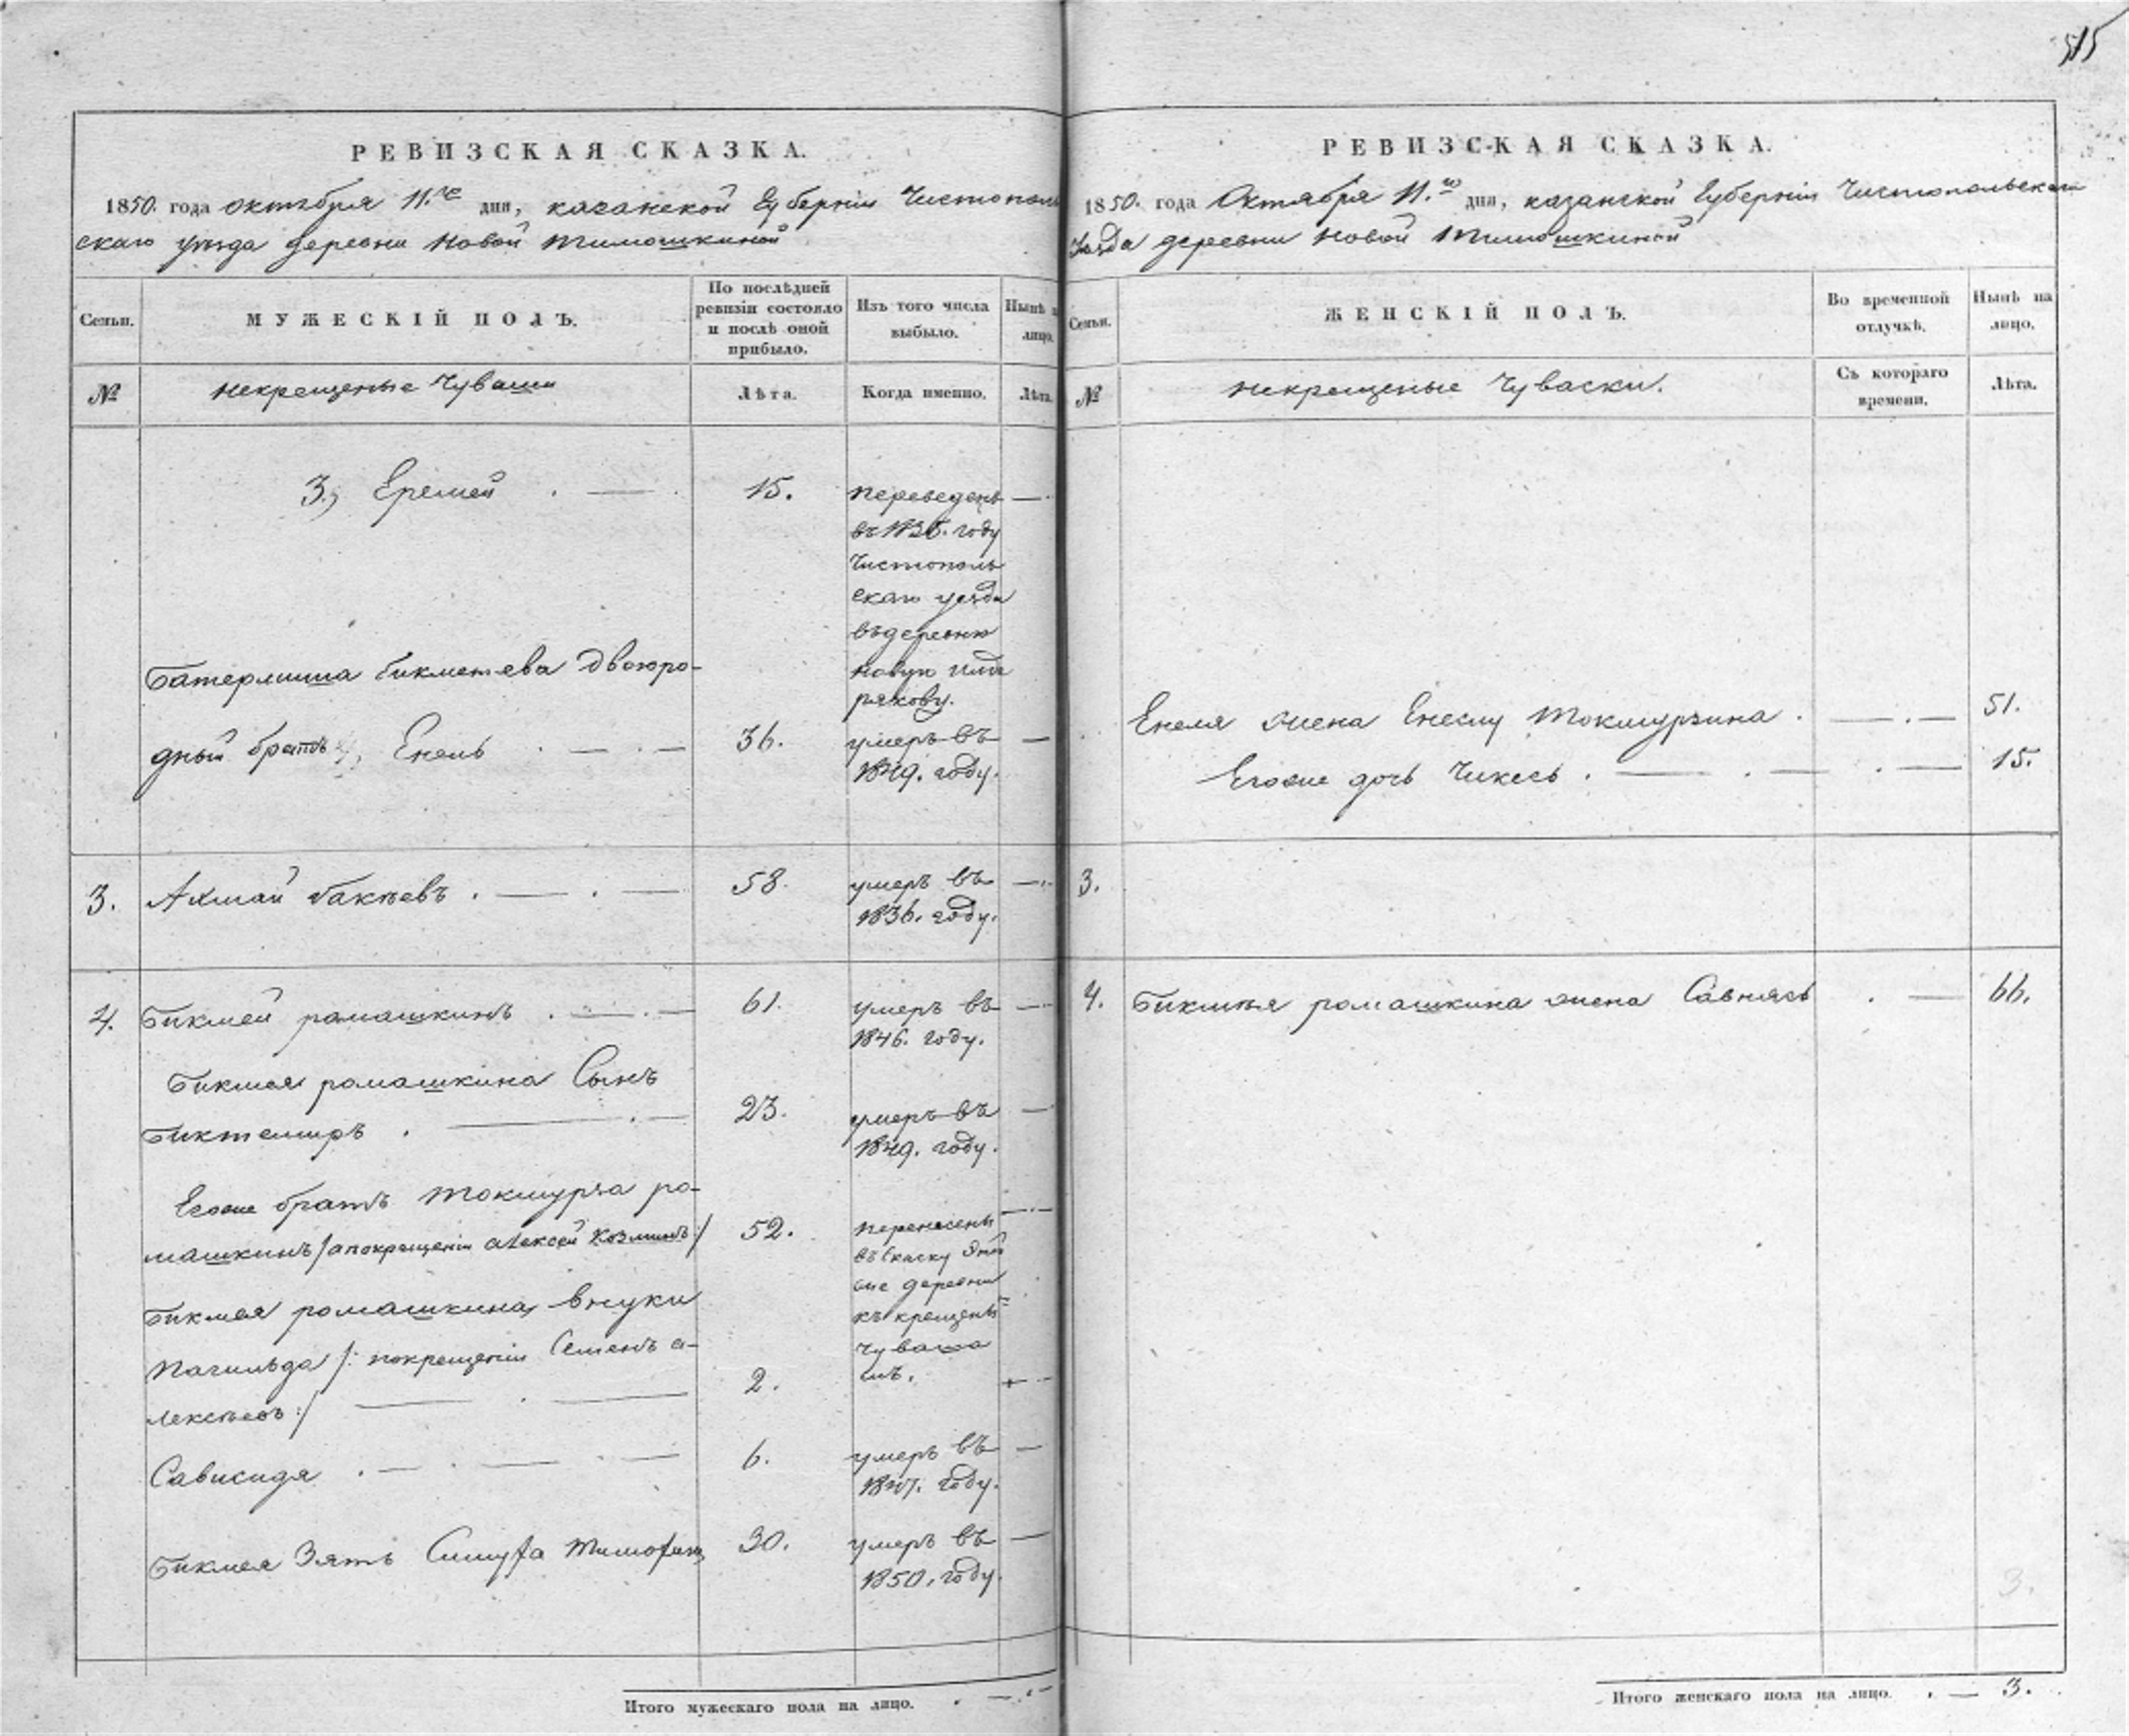 515
РЕВИЗСКАЯ СКАЗКА.
1850. года октября 11.го дня, казанской Губернiи Чистополь
скаго уезда деревни Новой Тимошкиной
Семьи.
МУЖЕСКIЙ ПОЛЪ.
По послѣдней ревизiи состояло и послѣ оной прибыло.
Изъ того числа выбыло.
Нынѣ н лицо.
№
некрещеные Чуваши
Лѣта.
Когда именно.
Лѣта.
3., Еремей 15. переведенъ
въ году
Чистополь
скаго уезда
въ деревню
Новую
рякову.
Батермиша бикметева двоюро-
дный братъ Енель 36. умеръ въ
1849. году.
3. Ахмай бакѣевъ 58. умеръ въ
1836. году.
4. Бикмей ромашкинъ 61. умеръ въ
1846. году.
Бикмея ромашкина Сынъ
Биктемиръ 23. умеръ въ
1849. году.
Егоже братъ Токмурза ро-
машкинъ /а покрещенiи алексей Козминъ:/ 52. перенесены
въ скаску
же деревни
къ крещены
Чуваша
мъ.
Бикмея ромашкина, внуки
Пачильда /: покрещенiи Семенъ а-
лексѣевъ:/ 2.
6. умеръ въ
1847. году.
Бикмея Зять 30. умеръ въ
1850. году.
Итого мужескаго пола на лицо.
РЕВИЗСКАЯ СКАЗКА.
1850. года Октября 11.го дня, казанской Губернiи Чистопольскаго
Уезда деревни Новой Тимошкиной
Семьи.
ЖЕНСКIЙ ПОЛЪ.
Во временной отлучкѣ.
Нынѣ на лицо.
№
некрещеные Чуваски.
Съ котораго времени.
Лѣта.
Енеля жена Енеслу Токмурзина 51.
Егоже дочь Чикесь 15.
3.
4. Бикмѣя ромашкина жена 66.
3.
Итого женскаго пола на лицо. 3.